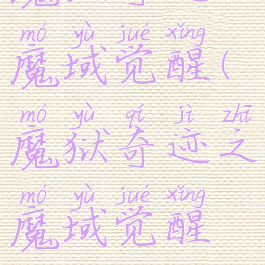 mó yù jué xǐng
魔域觉醒(
mó yù qí jì zhī
魔狱奇迹之
mó yù jué xǐng
魔域觉醒